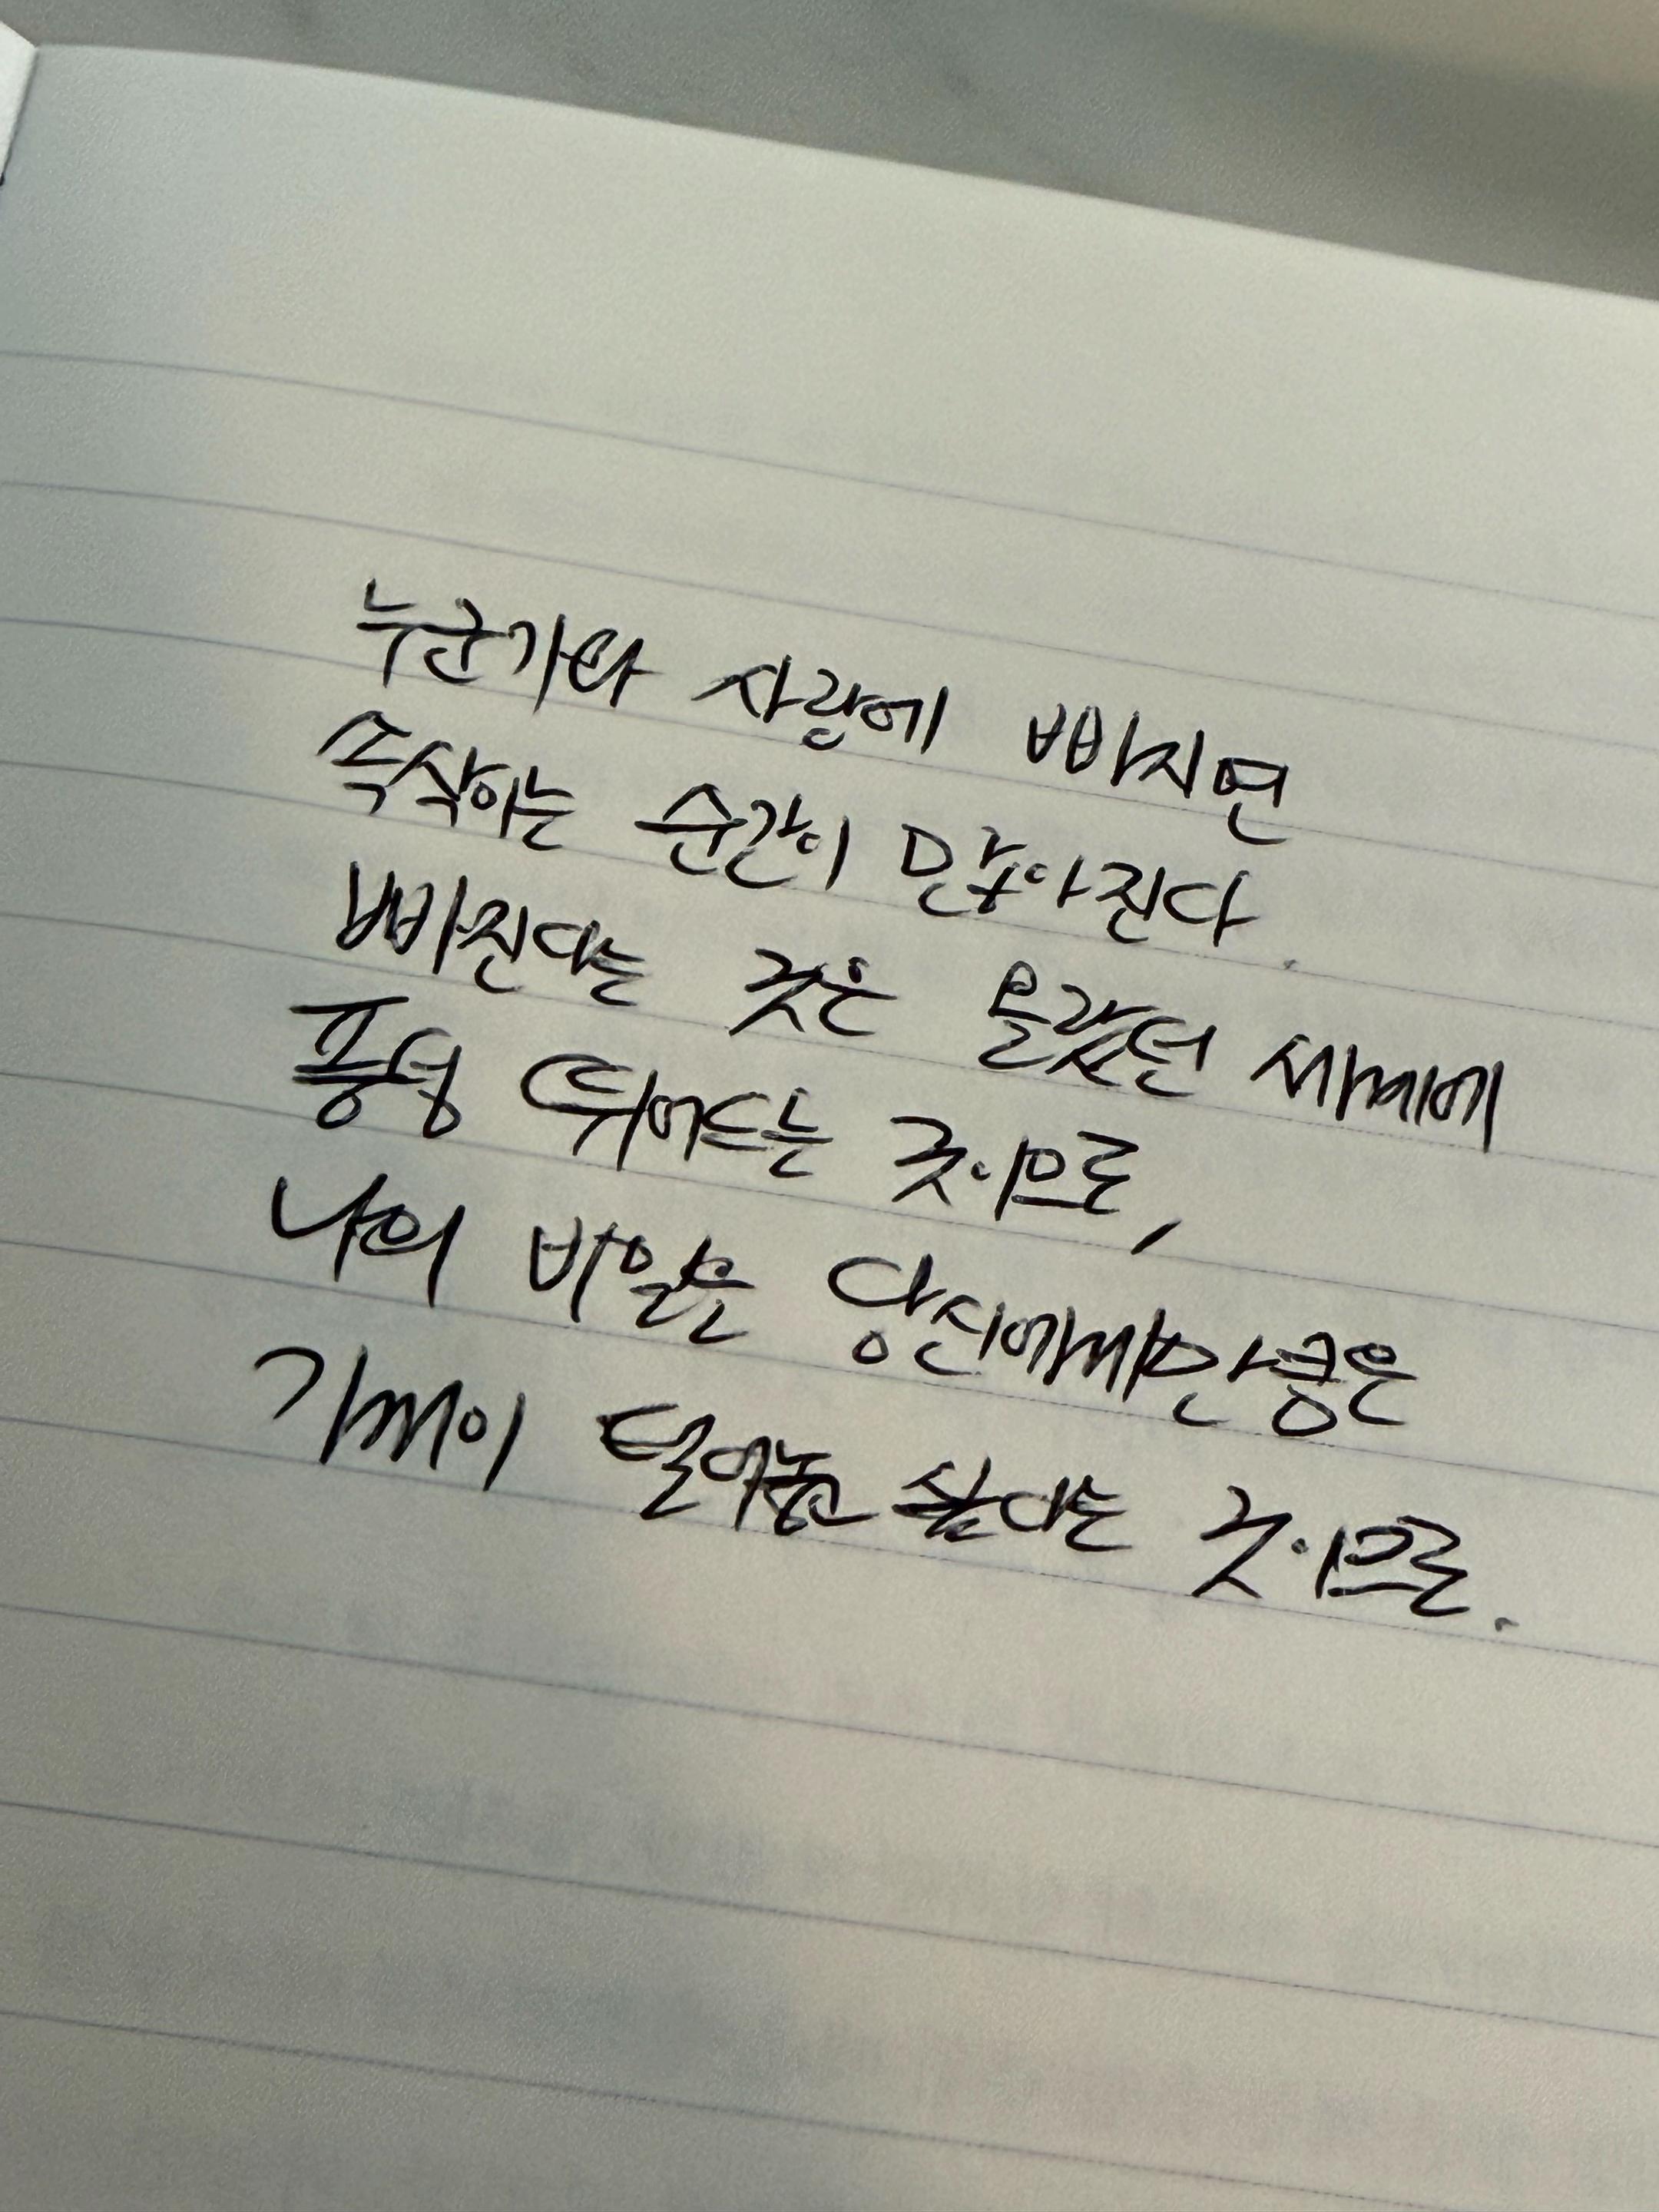 누군가와 사랑에 빠지면
속삭이는 순간이 많아진다.
빠진다는 것은 몰랐던 세계에
풍덩 뛰어드는 것이므로,
나의 비밀은 당신에게만큼은
기꺼이 털어놓고 싶다는 것이므로.